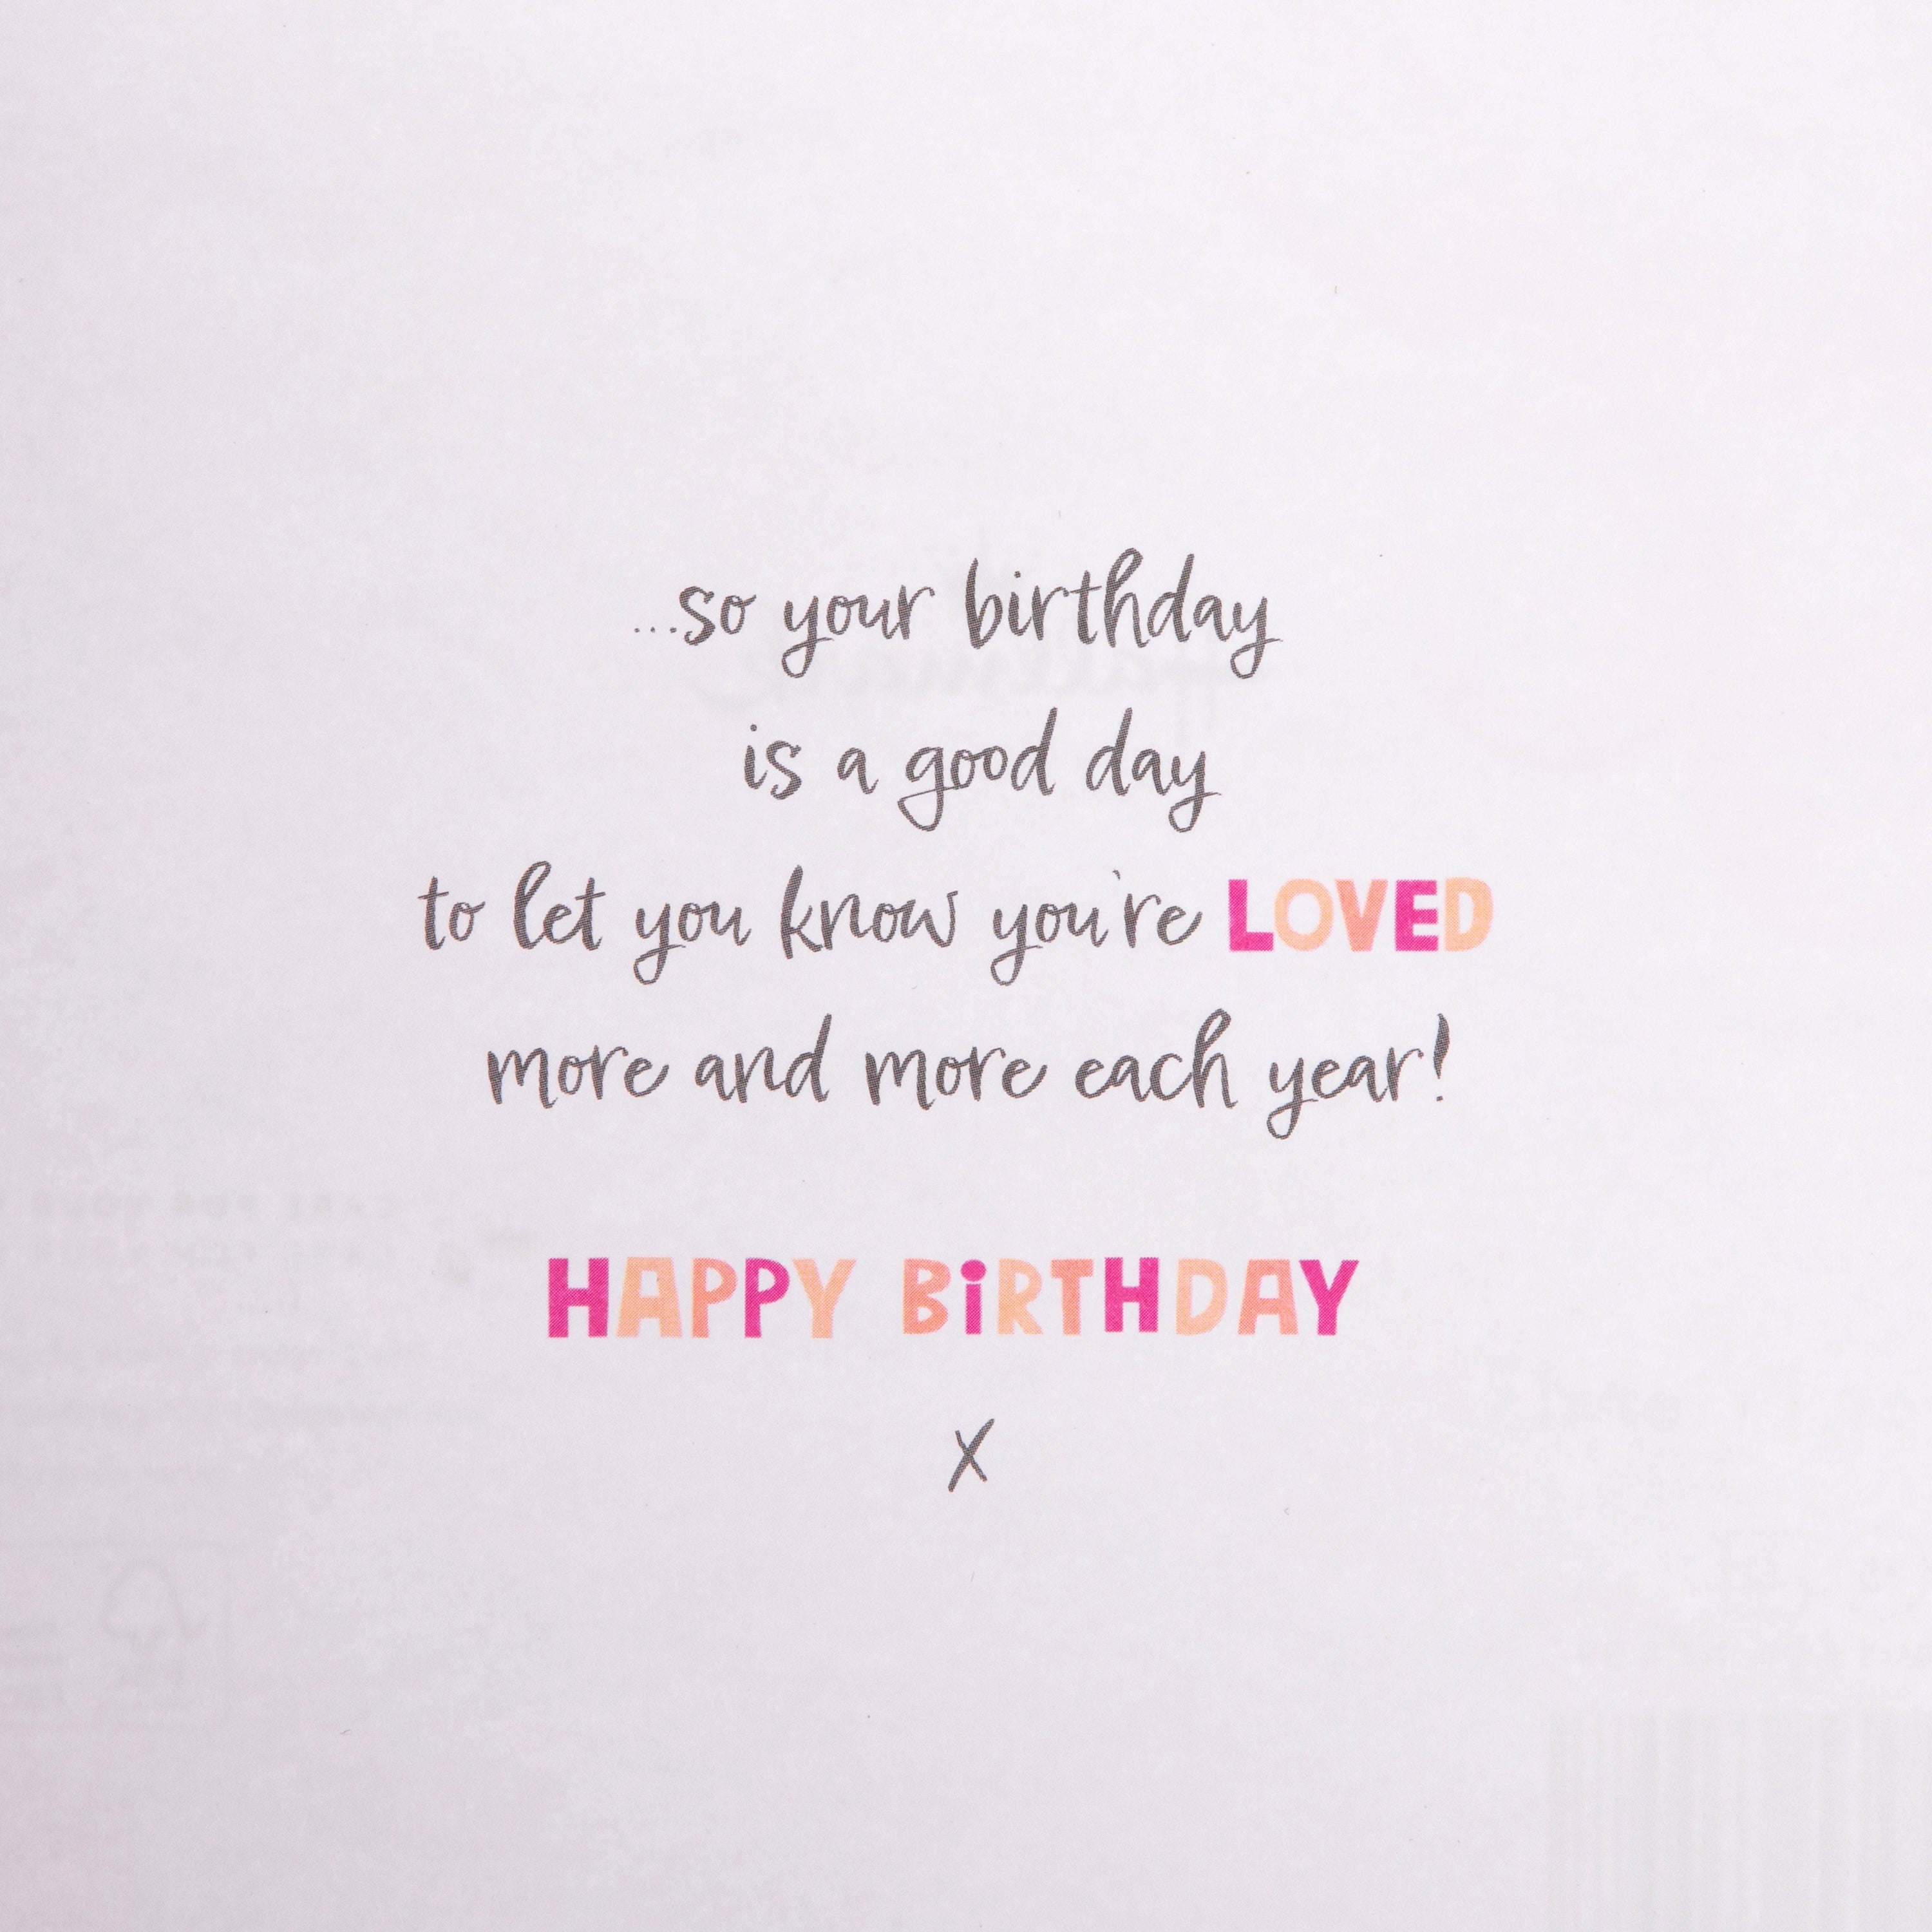 ...so your birthday
is a good day
to let you know you're LOVED
more and more each year!
HAPPY BiRTHDAY
x